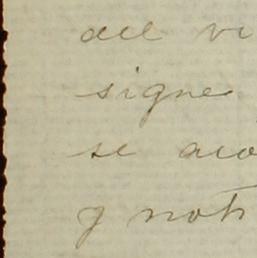 del vi
signe
se aco
y noti